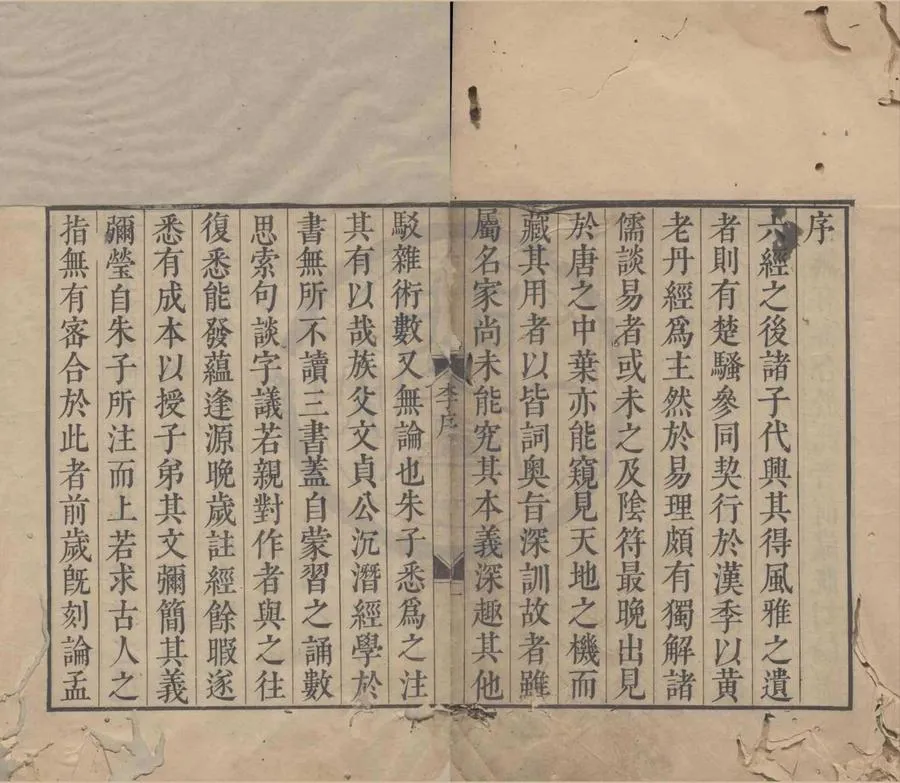 序
六經之後諸子代興其得風雅之遺
者則有楚騷參同契行於漢季以黃
老丹經爲主然於易理頗有獨解諸
儒談易者或未之及陰符最晚出見
於唐之中葉亦能窺見天地之機而
藏其用者以皆詞奧旨深訓故者雖
屬名家尚未能究其本義深趣其他
李序
一
駁雜術數又無論也朱子悉爲之注
其有以哉族父文貞公沉潛經學於
書無所不讀三書蓋自蒙習之誦數
思索句談字議若親對作者與之往
復悉能發蘊逢源晚歲註經餘暇逐
悉有成本以授子弟其文彌簡其義
彌瑩自朱子所注而上若求古人之
指無有宻合於此者前歲旣刻論孟